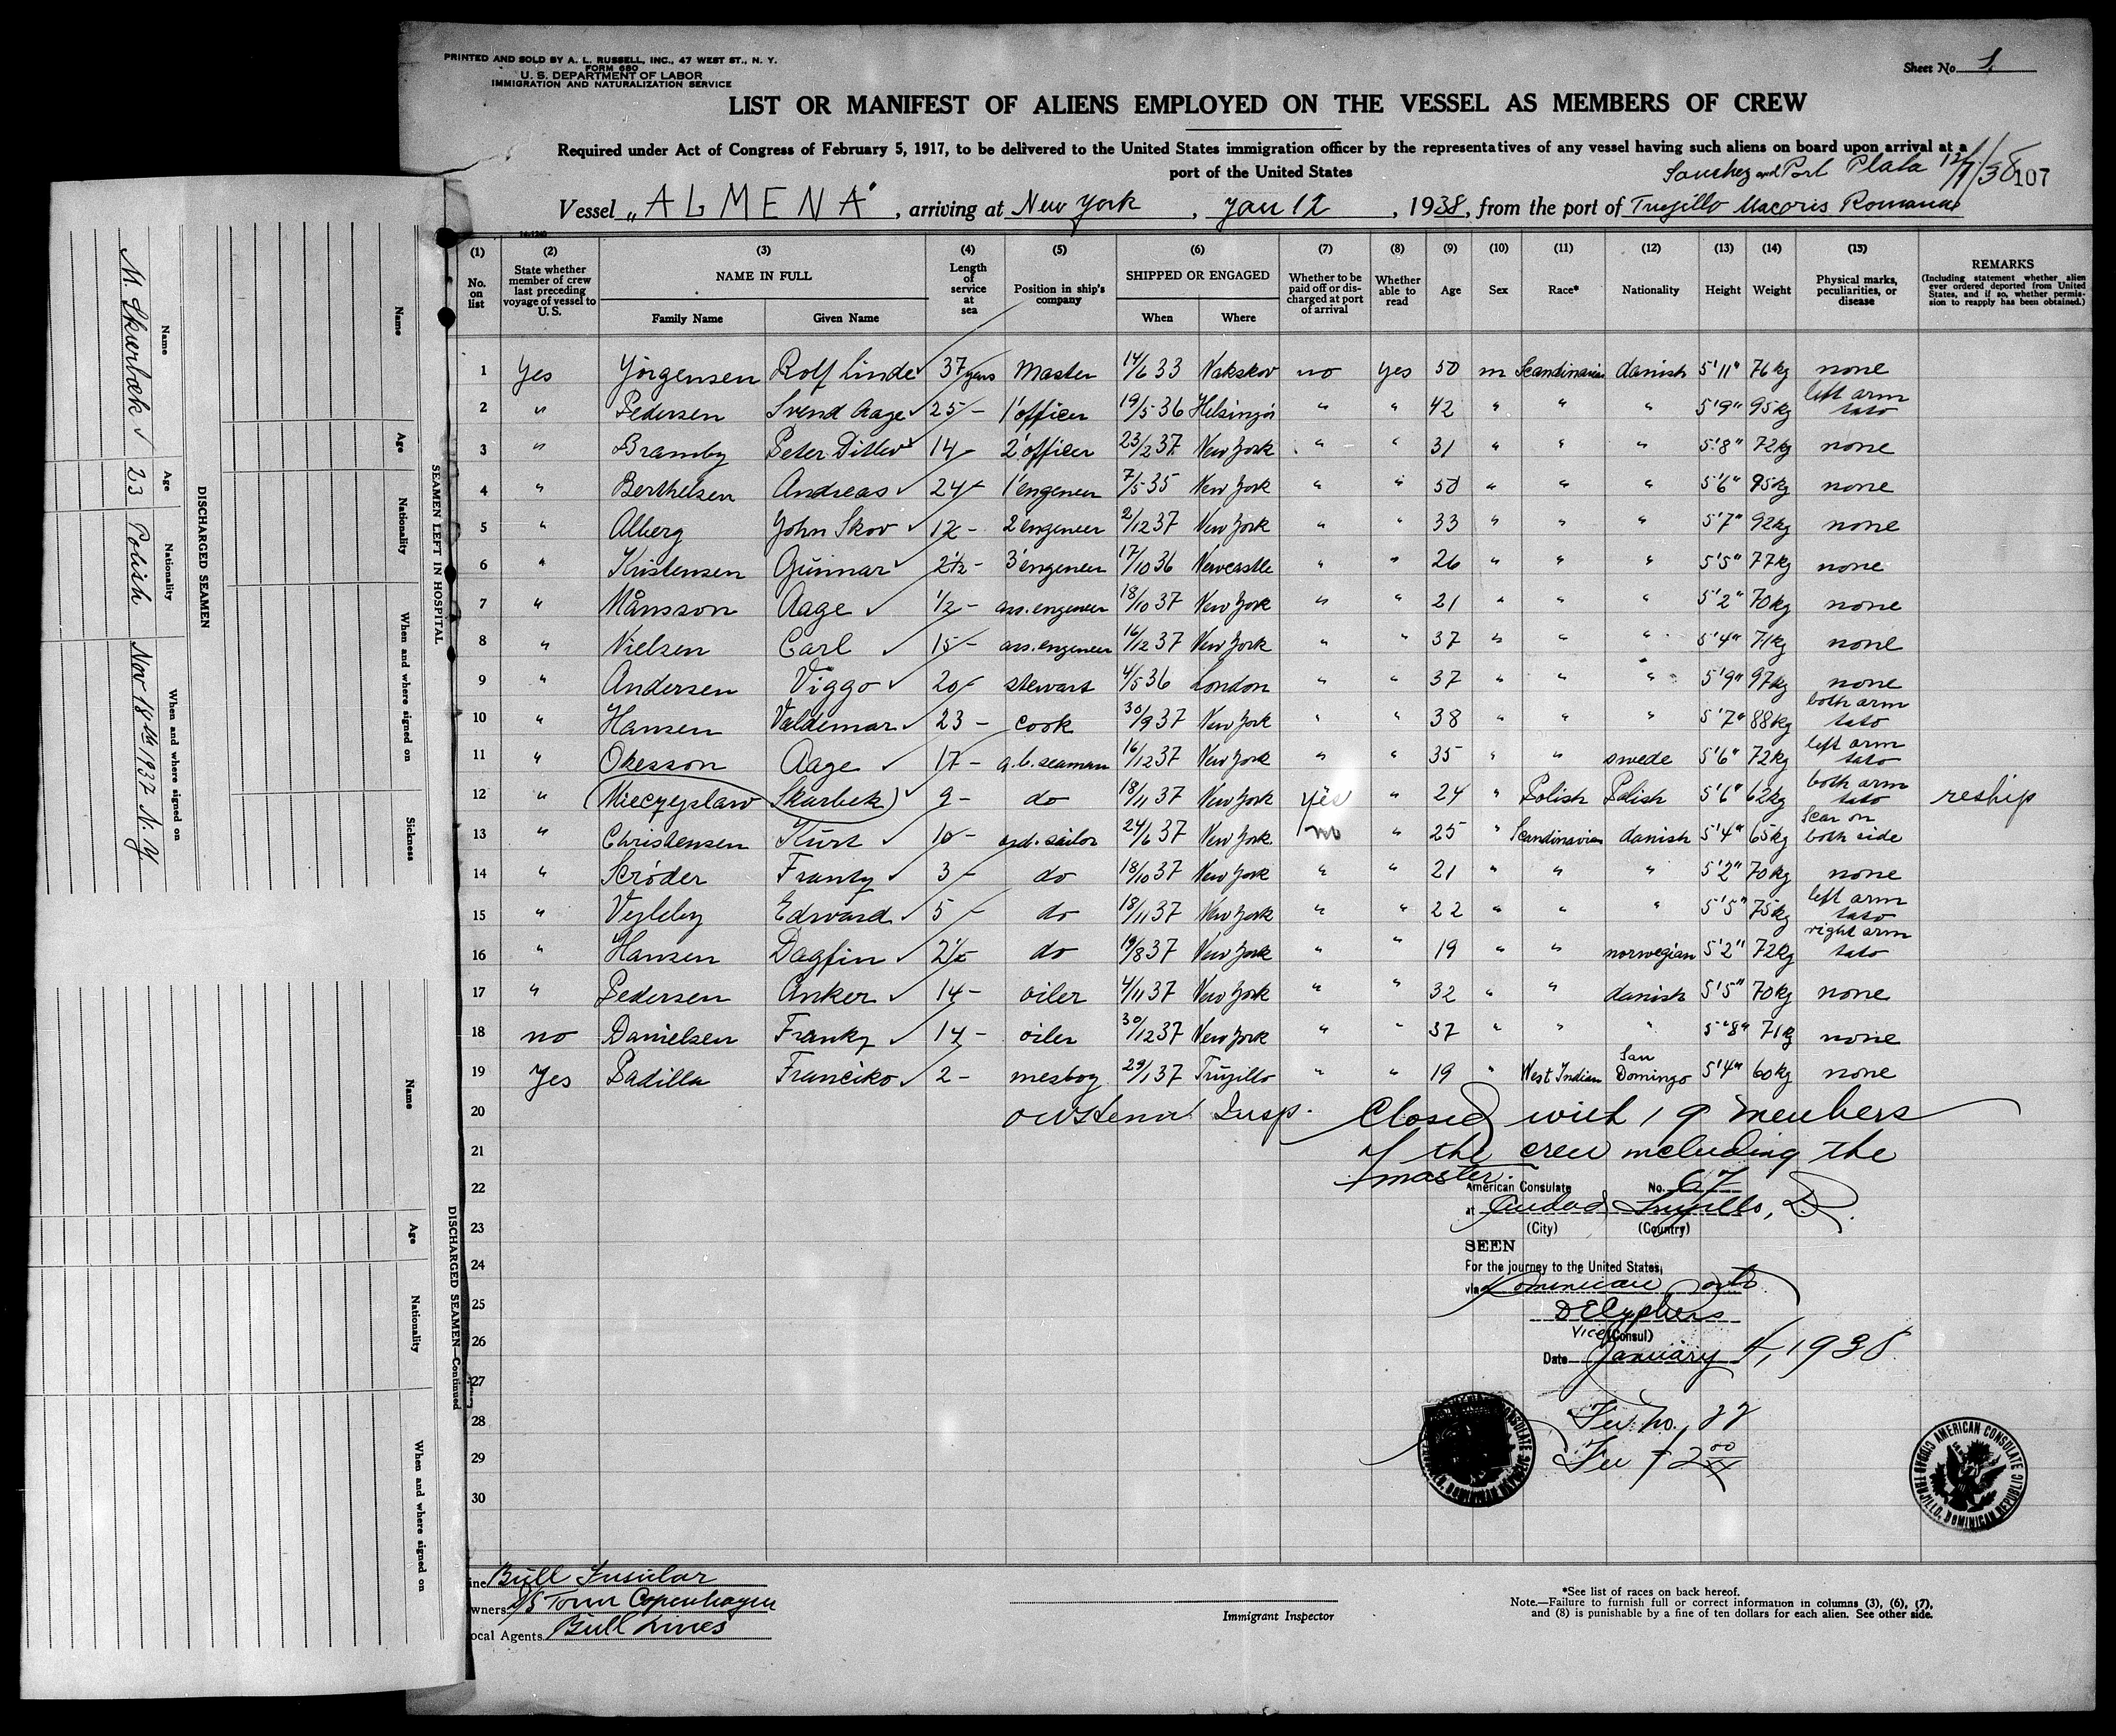 PRINTED AND SOLD BY A. L. RUSSELL, INC., 47 WEST ST., N. Y.
FORM 680
U. S. DEPARTMENT OF LABOR
IMMIGRATION AND NATURALIZATION SERVICE
Sheet No 1.
LIST OR MANIFEST OF ALIENS EMPLOYED ON THE VESSEL AS MEMBERS OF CREW
Required under Act of Congress of February 5, 1917, to be delivered to the United States immigration officer by the representatives of any vessel having such aliens on board upon arrival at a
port of the United States
Sanchez and Port Plata 12/1/38 107
Vessel "ALMENA", arriving at New York, Jan 12, 1938, from the port of Trujillo Macoris Romana
(1) (2) (3) (4) (5) (6) (7) (8) (9) (10) (11) (12) (13) (14) (15)
No. on list
State whether member of crew last preceding voyage of vessel to U. S.
NAME IN FULL
Family Name Given Name
Length of service at sea
Position in ship's company
SHIPPED OR ENGAGED
When Where
Whether to be paid off or discharged at port of arrival
Whether able to read
Age Sex Race* Nationality Height Weight
Physical marks, peculiarities, or disease
REMARKS
(Including statement whether alien ever ordered deported from United States, and if so, whether permission to reapply has been obtained.)
1 Yes Jörgensen Rolf Linde 37 years Master 14/6 33 Nakskov no yes 50 m Scandinavian danish 5'11" 76kg none
2 " Pedersen Svend Aage 25 - 1'officer 19/5 36 Helsingör " " 42 " " " 5'9" 95kg left arm tato
3 " Bramby Peter Ditlev 14 - 2'officer 23/2 37 New York " " 31 " " " 5'8" 72kg none
4 " Berthelsen Andreas 24 - 1'engeneer 7/5 35 New York " " 50 " " " 5'6" 95kg none
5 " Alberg John Skov 12 - 2'engeneer 2/12 37 New York " " 33 " " " 5'7" 92kg none
6 " Kristensen Gunnar 2½ - 3'engeneer 17/10 36 Newcastle " " 26 " " " 5'5" 77kg none
7 " Månsson Aage ½ - ass. engeneer 18/10 37 New York " " 21 " " " 5'2" 70kg none
8 " Nielsen Carl 15 - ass. engeneer 16/12 37 New York " " 37 " " " 5'4" 71kg none
9 " Andersen Viggo 20 - stewart 4/5 36 London " " 37 " " " 5'9" 97kg none
10 " Hansen Valdemar 23 - cook 30/9 37 New York " " 38 " " " 5'7" 88kg both arm tato
11 " Okesson Aage 17 - a.b. seaman 16/12 37 New York " " 35 " " swede 5'6" 72kg left arm tato
12 " (Mieczyslaw Skarbek) 9 - do 18/11 37 New York yes " 24 " Polish Polish 5'6" 62kg both arm tato reship
13 " Christensen Kurt 10 - ord. sailor 24/6 37 New York no " 25 " Scandinavian danish 5'4" 65kg scar on both side
14 " Scröder Frantz 3 - do 18/10 37 New York " " 21 " " " 5'2" 70kg none
15 " Vejleby Edward 5 - do 18/11 37 New York " " 22 " " " 5'5" 75kg left arm tato
16 " Hansen Dagfin 2½ do 19/8 37 New York " " 19 " " norwegian 5'2" 72kg right arm tato
17 " Pedersen Anker 14 - oiler 4/11 37 New York " " 32 " " danish 5'5" 70kg none
18 no Danielsen Frank 14 - oiler 30/12 37 New York " " 37 " " " 5"8" 71kg none
19 Yes Padilla Franciko 2 - mesboy 29/1 37 Trujillo " " 19 " West Indian San Domingo 5'4" 60kg none
20 Insp. Closed with 19 members
21 of the crew including the
22 master.
American Consulate No. 67
23 at Ciudad Trujillo, D.R.
(City) (Country)
SEEN
24 For the journey to the United States,
via Dominican Ports
25 DECyphers
26 Vice (Consul)
Date January 4, 1938
27
28
29
30
Fee $ 2 00/xx
AMERICAN CONSULATE CIUDAD TRUJILLO, DOMINICAN REPUBLIC
ine Bull Insular
wners A/S Torm Copenhagen
ocal Agents Bull Lines
Immigrant Inspector
*See list of races on back hereof.
Note.—Failure to furnish full or correct information in columns (3), (6), (7),
and (8) is punishable by a fine of ten dollars for each alien. See other side.
SEAMEN LEFT IN HOSPITAL
Name Age Nationality When and where signed on Sickness
DISCHARGED SEAMEN
Name Age Nationality When and where signed on
M. Skarbak 23 Polish Nov 18th 1937 N. Y.
DISCHARGED SEAMEN—Continued
Name Age Nationality When and where signed on